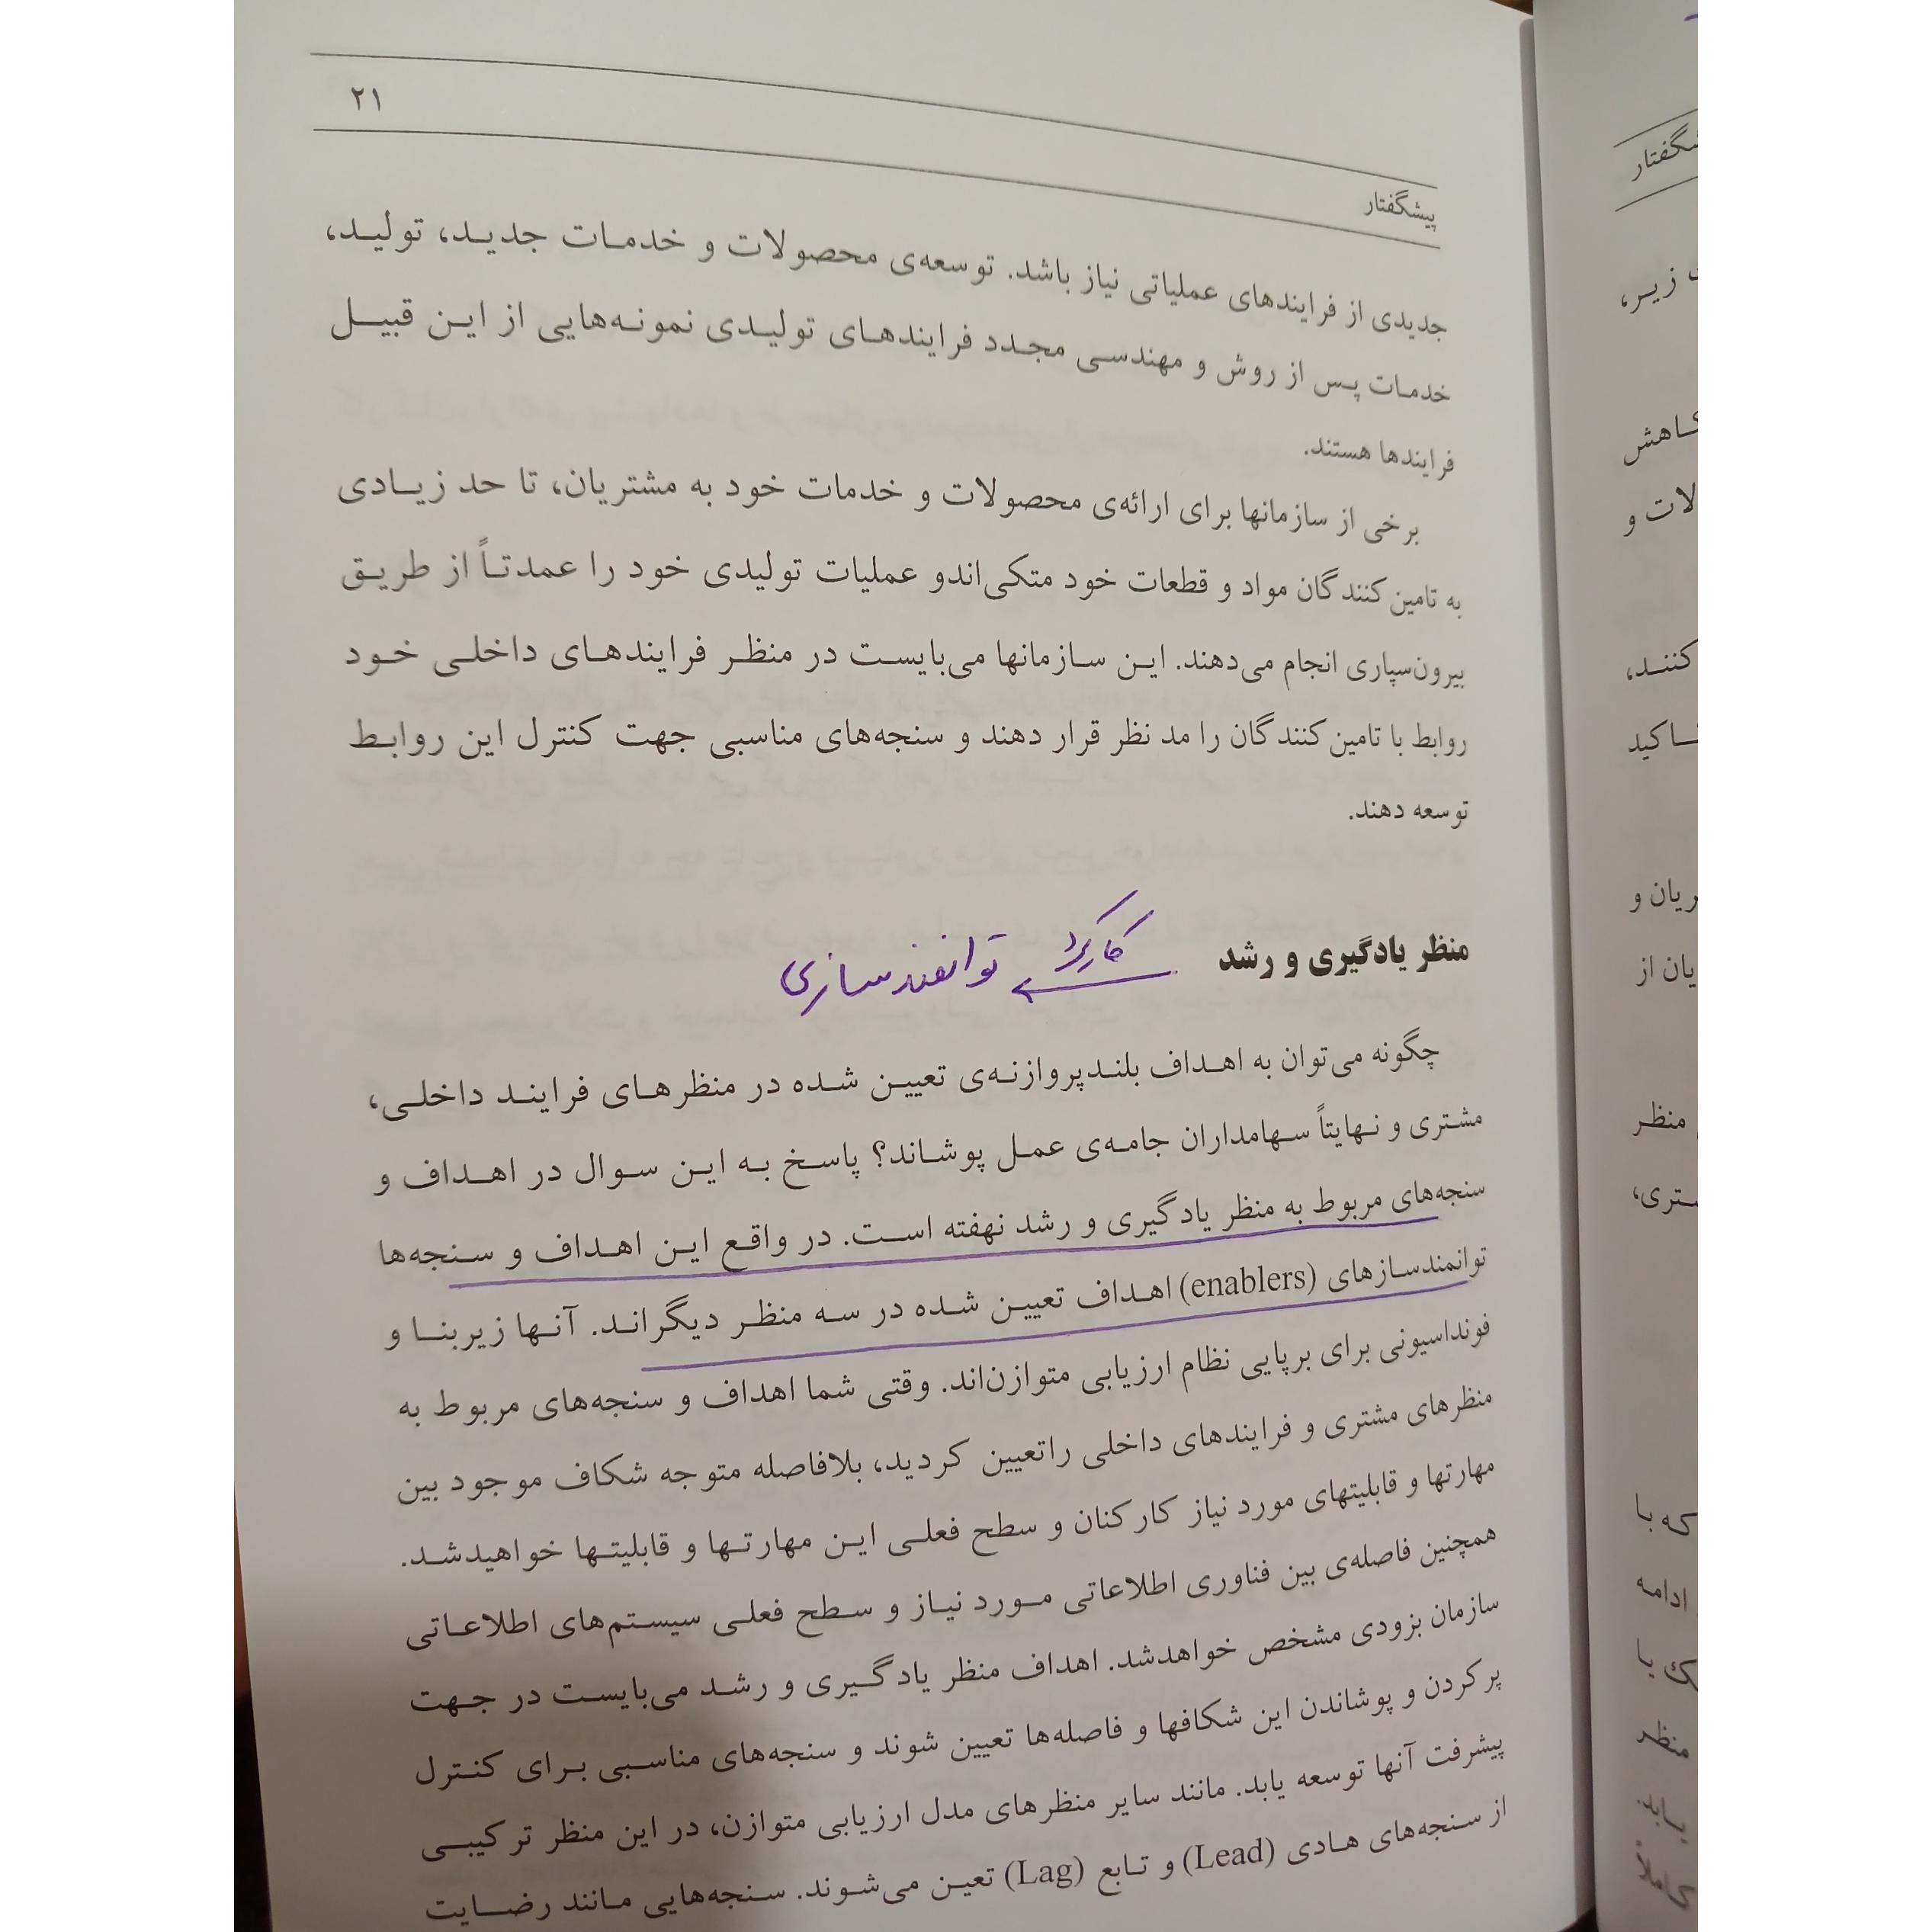 ۲۱
پیشگفتار
جدیدی از فرایندهای عملیاتی نیاز باشد. توسعه‌ی محصولات و خدمات جدید، تولید،
خدمات پس از روش و مهندسی مجدد فرایندهای تولیدی نمونه‌هایی از این قبیل
فرایندها هستند.
برخی از سازمانها برای ارائه‌ی محصولات و خدمات خود به مشتریان، تا حد زیادی
به تامین‌کنندگان مواد و قطعات خود متکی‌اندو عملیات تولیدی خود را عمدتاً از طریق
بیرون‌سپاری انجام می‌دهند. این سازمانها می‌بایست در منظر فرایندهای داخلی خود
روابط با تامین‌کنندگان را مد نظر قرار دهند و سنجه‌های مناسبی جهت کنترل این روابط
توسعه دهند.
منظر یادگیری و رشد کارکرد توانمندسازی
چگونه می‌توان به اهداف بلندپروازنه‌ی تعیین شده در منظرهای فرایند داخلی،
مشتری و نهایتاً سهامداران جامه‌ی عمل پوشاند؟ پاسخ به این سوال در اهداف و
سنجه‌های مربوط به منظر یادگیری و رشد نهفته است. در واقع این اهداف و سنجه‌ها
توانمندسازهای (enablers) اهداف تعیین شده در سه منظر دیگراند. آنها زیربنا و
فونداسیونی برای برپایی نظام ارزیابی متوازن‌اند. وقتی شما اهداف و سنجه‌های مربوط به
منظرهای مشتری و فرایندهای داخلی راتعیین کردید، بلافاصله متوجه شکاف موجود بین
مهارتها و قابلیتهای مورد نیاز کارکنان و سطح فعلی این مهارتها و قابلیتها خواهیدشد.
همچنین فاصله‌ی بین فناوری اطلاعاتی مورد نیاز و سطح فعلی سیستم‌های اطلاعاتی
سازمان بزودی مشخص خواهدشد. اهداف منظر یادگیری و رشد می‌بایست در جهت
پرکردن و پوشاندن این شکافها و فاصله‌ها تعیین شوند و سنجه‌های مناسبی برای کنترل
پیشرفت آنها توسعه یابد. مانند سایر منظرهای مدل ارزیابی متوازن، در این منظر ترکیبی
از سنجه‌های هادی (Lead) و تابع (Lag) تعین می‌شوند. سنجه‌هایی مانند رضایت
زیر،
کاهش
لات و
کنند،
تاکید
یان از
منظر
که با
ادامه
منظر